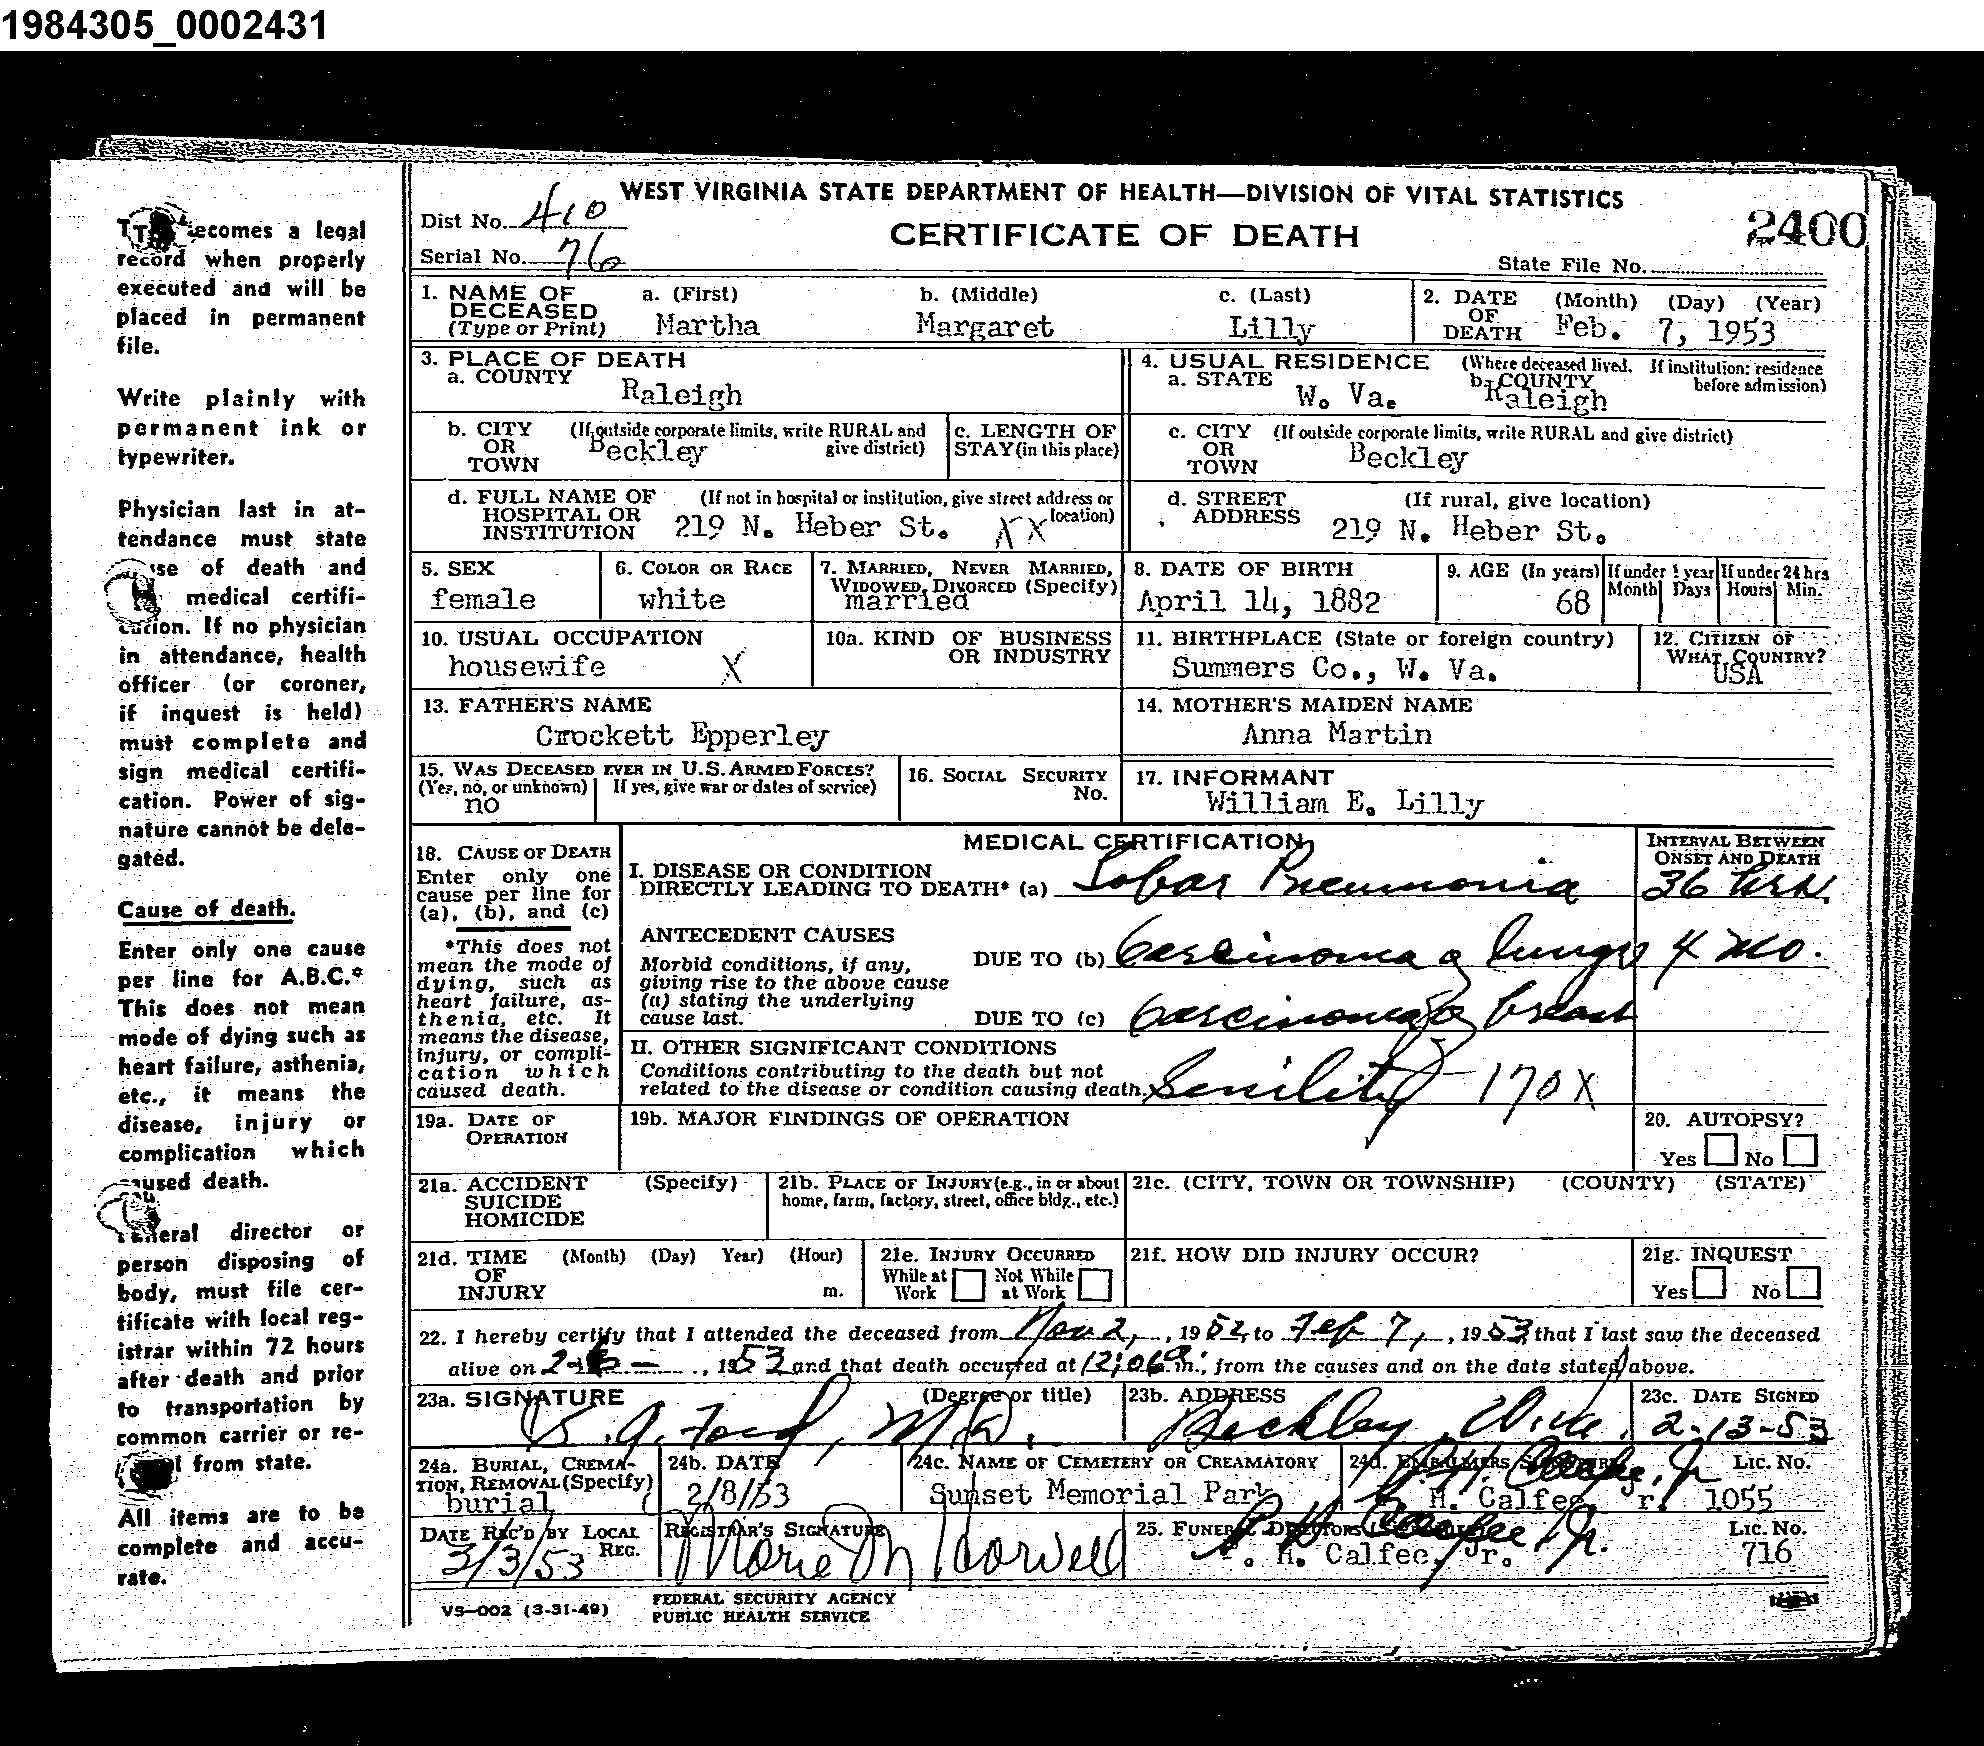 1984305_0002431
WEST VIRGINIA STATE DEPARTMENT OF HEALTH—DIVISION OF VITAL STATISTICS
Dist No. 410
CERTIFICATE OF DEATH
2400
Serial No. 76
State File No.
1. NAME OF DECEASED (Type or Print) a. (First) Martha b. (Middle) Margaret c. (Last) Lilly
2. DATE OF DEATH (Month) (Day) (Year) Feb. 7, 1953
3. PLACE OF DEATH
a. COUNTY Raleigh
4. USUAL RESIDENCE (Where deceased lived. If institution: residence before admission)
a. STATE W. Va. b. COUNTY Raleigh
b. CITY OR TOWN (If outside corporate limits, write RURAL and give district) Beckley
c. LENGTH OF STAY (in this place)
c. CITY OR TOWN (If outside corporate limits, write RURAL and give district) Beckley
d. FULL NAME OF HOSPITAL OR INSTITUTION (If not in hospital or institution, give street address or location) 219 N. Heber St. XX
d. STREET ADDRESS (If rural, give location) 219 N. Heber St.
5. SEX female
6. COLOR OR RACE white
7. MARRIED, NEVER MARRIED, WIDOWED, DIVORCED (Specify) married
8. DATE OF BIRTH April 14, 1882
9. AGE (In years) 68 If under 1 year Month Days If under 24 hrs Hours Min.
10. USUAL OCCUPATION housewife X
10a. KIND OF BUSINESS OR INDUSTRY
11. BIRTHPLACE (State or foreign country) Summers Co., W. Va.
12. CITIZEN OF WHAT COUNTRY? USA
13. FATHER'S NAME Crockett Epperley
14. MOTHER'S MAIDEN NAME Anna Martin
15. WAS DECEASED EVER IN U.S. ARMED FORCES? (Yes, no, or unknown) no If yes, give war or dates of service)
16. SOCIAL SECURITY No.
17. INFORMANT William E. Lilly
18. CAUSE OF DEATH
Enter only one cause per line for (a), (b), and (c)
*This does not mean the mode of dying, such as heart failure, asthenia, etc. It means the disease, injury, or complication which caused death.
MEDICAL CERTIFICATION
INTERVAL BETWEEN ONSET AND DEATH
I. DISEASE OR CONDITION DIRECTLY LEADING TO DEATH* (a) Lobar Pneumonia 36 hrs.
ANTECEDENT CAUSES
Morbid conditions, if any, giving rise to the above cause (a) stating the underlying cause last.
DUE TO (b) Carcinoma of lungs 4 mo.
DUE TO (c) Carcinoma of breast
II. OTHER SIGNIFICANT CONDITIONS
Conditions contributing to the death but not related to the disease or condition causing death. Senility 170X
19a. DATE OF OPERATION
19b. MAJOR FINDINGS OF OPERATION
20. AUTOPSY? Yes No
21a. ACCIDENT SUICIDE HOMICIDE (Specify)
21b. PLACE OF INJURY (e.g., in or about home, farm, factory, street, office bldg., etc.)
21c. (CITY, TOWN OR TOWNSHIP) (COUNTY) (STATE)
21d. TIME OF INJURY (Month) (Day) Year) (Hour) m.
21e. INJURY OCCURRED While at Work Not While at Work
21f. HOW DID INJURY OCCUR?
21g. INQUEST Yes No
22. I hereby certify that I attended the deceased from Nov 2, 1952, to Feb 7, 1953 that I last saw the deceased
alive on 2-6- , 1953 and that death occurred at 12:06 a m., from the causes and on the date stated above.
23a. SIGNATURE (Degree or title) Ford, M.D.
23b. ADDRESS Beckley, W. Va.
23c. DATE SIGNED 2-13-53
24a. BURIAL, CREMATION, REMOVAL (Specify) burial
24b. DATE 2/8/53
24c. NAME OF CEMETERY OR CREAMATORY Sunset Memorial Park
24d. EMBALMERS SIGNATURE H. Calfee, Jr. LIC. NO. 1055
DATE REC'D BY LOCAL REG. 3/3/53
REGISTRAR'S SIGNATURE Marie M Harvell
25. FUNERAL DIRECTORS H. Calfee, Jr. LIC. NO. 716
VS—002 (3-31-49)
FEDERAL SECURITY AGENCY
PUBLIC HEALTH SERVICE
becomes a legal
record when properly
executed and will be
placed in permanent
file.
Write plainly with
permanent ink or
typewriter.
Physician last in at-
tendance must state
of death and
medical certifi-
cation. If no physician
in attendance, health
officer (or coroner,
if inquest is held)
must complete and
sign medical certifi-
cation. Power of sig-
nature cannot be dele-
gated.
Cause of death.
Enter only one cause
per line for A.B.C.*
This does not mean
mode of dying such as
heart failure, asthenia,
etc., it means the
disease, injury or
complication which
caused death.
Funeral director or
person disposing of
body, must file cer-
tificate with local reg-
istrar within 72 hours
after death and prior
to transportation by
common carrier or re-
from state.
All items are to be
complete and accu-
rate.